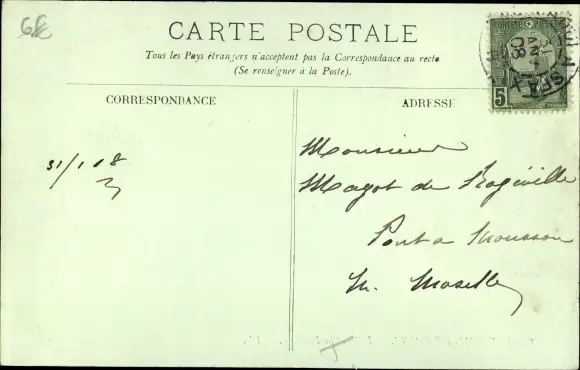 6€
CARTE POSTALE
Tous les Pays étrangers n'acceptent pas la Correspondance au recto
(Se renseigner à la Poste).
CORRESPONDANCE
ADRESSE
5
08
SFAX
31/1 08
Monsieur
Magot de Rogéville
Pont a Mousson
M. Moselle